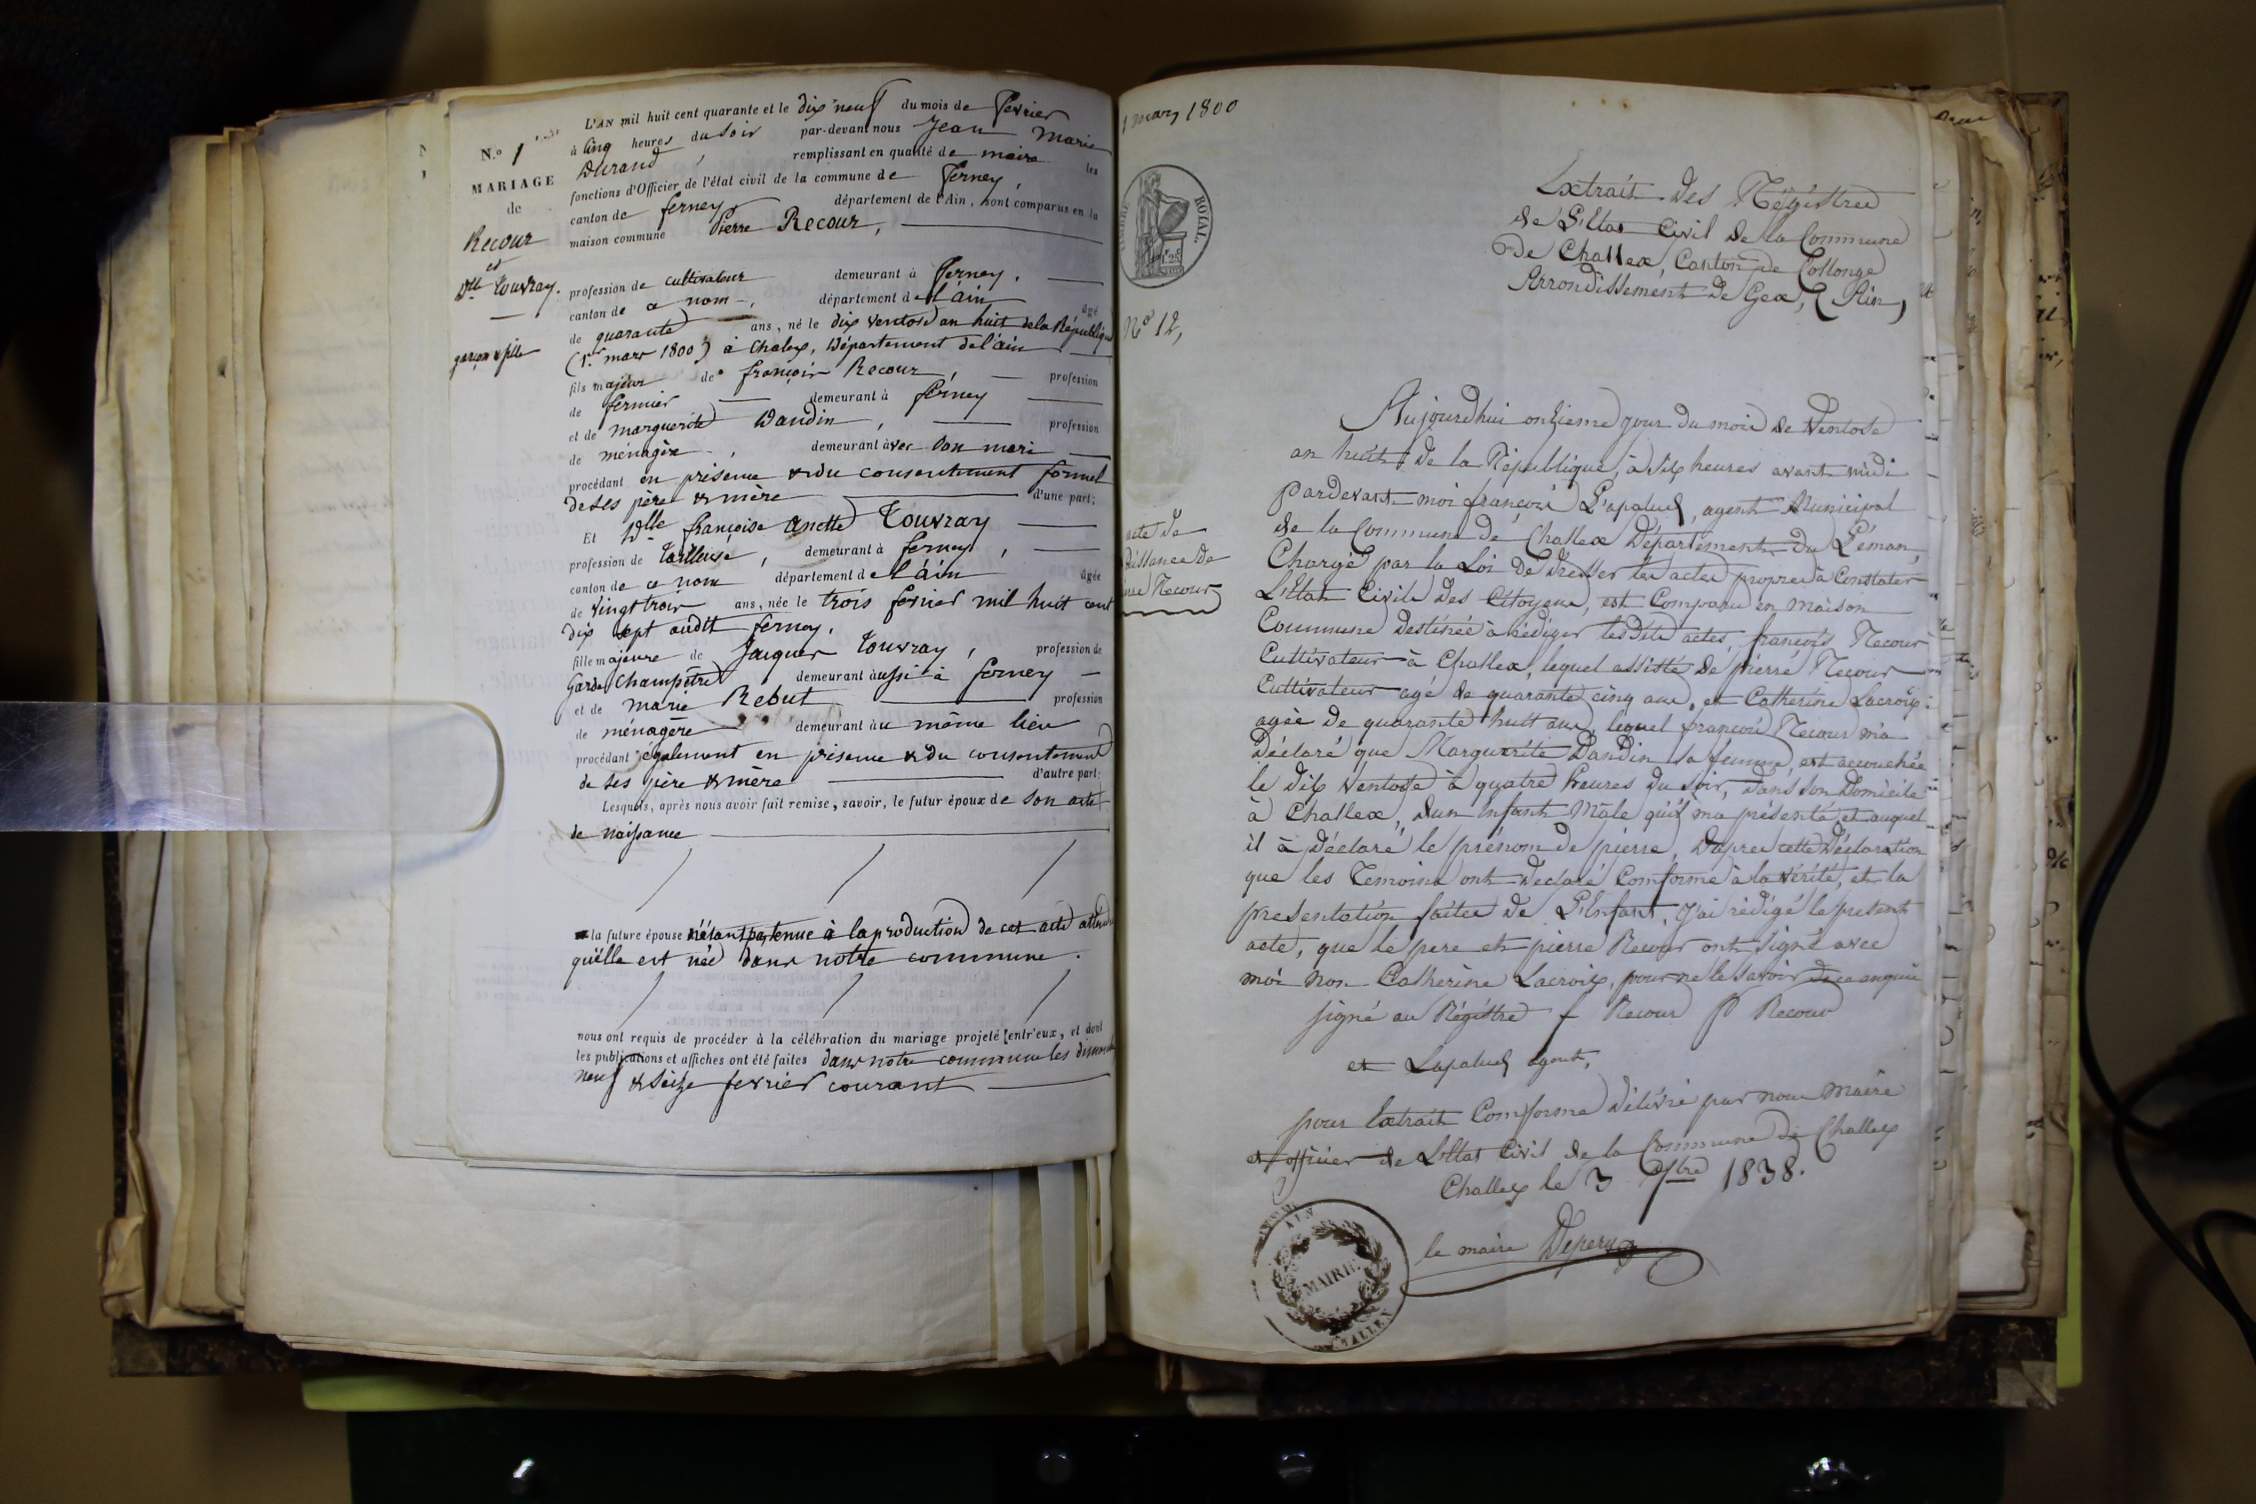 L'AN mil huit cent quarante et le dix neuf du mois de fevrier
à cinq heures du soir par-devant nous Jean Marie
Durand, remplissant en qualité de maire les
fonctions d'Officier de l'état civil de la commune de ferney,
canton de ferney, département de l'Ain, sont comparus en la
maison commune Pierre Recour,
N.º 1
MARIAGE
de
Recour
et
Dlle Touvray.
garçon & fille
profession de cultivateur demeurant à ferney.
canton de ce nom, département de l'ain âgé
de quarante ans, né le dix ventose an huit de la République
(1er mars 1800) à Chalex, Département de l'ain
fils majeur de françois Recour, profession
de fermier demeurant à ferney
et de marguerite Dandin, profession
de ménagère, demeurant avec son mari
procédant en présence & du consentement formel
de ses père & mère d'une part;
Et Dlle françoise Anette Touvray
profession de Tailleuse, demeurant à ferney,
canton de ce nom département de l'ain âgée
de vingt trois ans, née le trois fevrier mil huit cent
dix sept audit ferney.
fille majeure de Jacques Touvray, profession de
Garde Champêtre demeurant aussi à ferney
et de marie Rebut profession
de ménagère demeurant au même lieu
procédant également en présence & du consentement
de ses père & mère d'autre part;
Lesquels, après nous avoir fait remise, savoir, le futur époux de son acte
de naissance
la future épouse n'étant pas tenue à la production de cet acte attendu
qu'elle est née dans notre commune.
nous ont requis de procéder à la célébration du mariage projeté entr'eux, et dont
les publications et affiches ont été faites dans notre commune les dimanches
neuf & seize fevrier courant
1 mars 1800
ROYAL.
Extrait des Régistres
de L'Etat Civil de la Commune
De Challex, Canton de Collonge
Arrondissement de Gex, (Ain)
Nº 12,
Aujourdhui onzieme jour du mois de Ventose
an huit de la République, à dix heures avant midi
pardevant moi françois Lapalud, agent Municipal
de la Commune de Challex Département du Léman,
Chargé par la Loi de Dresser les actes propres à Constater
L'Etat Civile des Citoyens, est Comparu en Maison
Commune Destinée à rédiger lesdits actes, françois Recour
Cultivateur à Challex, lequel assisté de pierre Recour
Cultivateur agé de quarante cinq ans, et Catherine Lacroix
agée de quarante huit ans, lequel françois Recour m'a
Déclaré que Marguerite Dandin sa femme, est accouchée
le dix Ventose à quatre heures du soir, dans son Domicile
à Challex, d'un Enfant Mâle qu'il m'a présenté, et auquel
il à Déclaré le prénom de pierre, D'après cette Déclaration
que les Temoins ont Declaré Comforme à la vérité, et la
presentation faitee de L'Enfant, J'ai rédigé le present
acte, que le pere et pierre Recour ont signé avec
moi non Catherine Lacroix, pour ne le savoir
signé au Régistre f Recour P Recour
et Lapalud agent,
Naissance de
Recour
pour Extrait Comforme délivré par nous Maire
et officier de L'Etat Civil de la Commune de Challex
Challex le 3 1838.
le maire
AIN
MAIRIE
CHALLEX